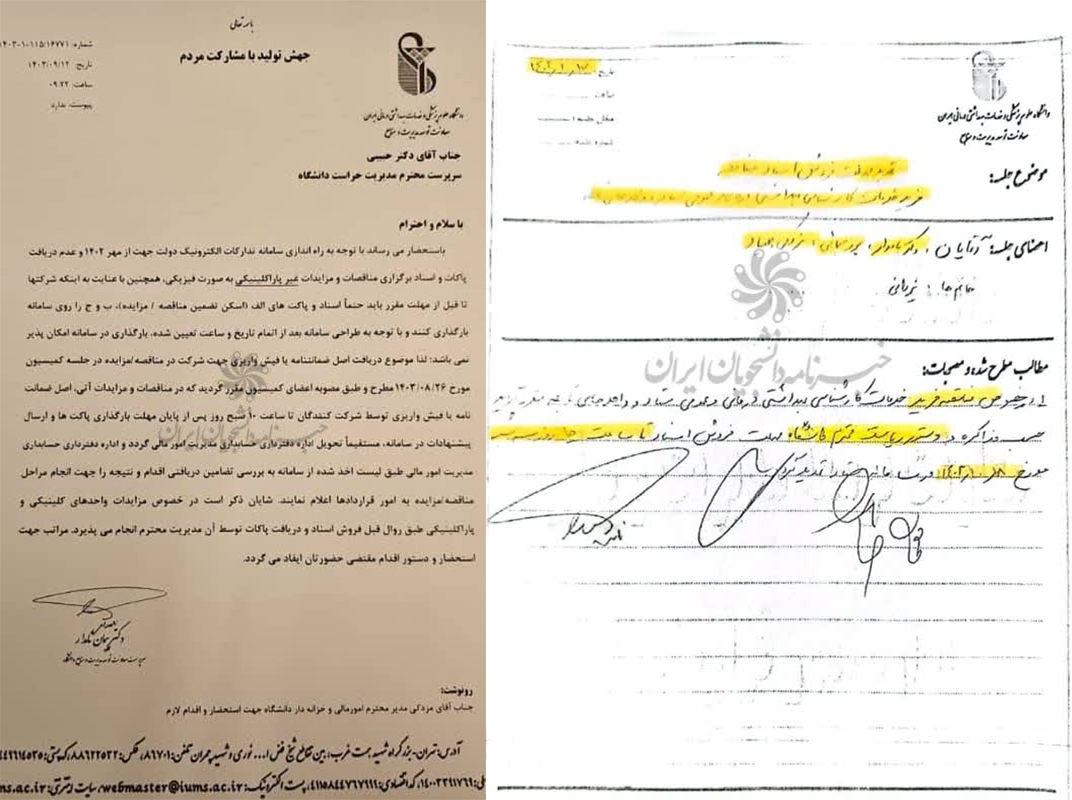 باسمه تعالی
جهش تولید با مشارکت مردم
شماره: ۱۴۰۳-۱-۱۱۵/۱۶۷۷۱
تاریخ: ۱۴۰۳/۰۹/۱۲
ساعت: ۰۹:۲۲
پیوست: ندارد
دانشگاه علوم پزشکی و خدمات بهداشتی درمانی ایران
معاونت توسعه مدیریت و منابع
جناب آقای دکتر حبیبی
سرپرست محترم مدیریت حراست دانشگاه
با سلام و احترام
باستحضار می رساند با توجه به راه اندازی سامانه تدارکات الکترونیک دولت جهت از مهر ۱۴۰۲ و عدم دریافت
پاکات و اسناد برگزاری مناقصات و مزایدات غیر پاراکلینیکی به صورت فیزیکی، همچنین با عنایت به اینکه شرکتها
تا قبل از مهلت مقرر باید حتماً اسناد و پاکت های الف (اسکن تضمین مناقصه / مزایده)، ب و ج را روی سامانه
بارگذاری کنند و با توجه به طراحی سامانه بعد از اتمام تاریخ و ساعت تعیین شده، بارگذاری در سامانه امکان پذیر
نمی باشد؛ لذا موضوع دریافت اصل ضمانتنامه یا فیش واریزی جهت شرکت در مناقصه/مزایده در جلسه کمیسیون
مورخ ۱۴۰۳/۰۸/۲۶ مطرح و طبق مصوبه اعضای کمیسیون مقرر گردید که در مناقصات و مزایدات آتی، اصل ضمانت
نامه یا فیش واریزی توسط شرکت کنندگان تا ساعت ۱۰ صبح روز پس از پایان مهلت بارگذاری پاکت ها و ارسال
پیشنهادات در سامانه، مستقیماً تحویل اداره دفترداری حسابداری مدیریت امور مالی گردد و اداره دفترداری حسابداری
مدیریت امور مالی طبق لیست اخذ شده از سامانه به بررسی تضامین دریافتی اقدام و نتیجه را جهت انجام مراحل
مناقصه/مزایده به امور قراردادها اعلام نمایند. شایان ذکر است در خصوص مزایدات واحدهای کلینیکی و
پاراکلینیکی طبق روال قبل فروش اسناد و دریافت پاکات توسط آن مدیریت محترم انجام می پذیرد. مراتب جهت
استحضار و دستور اقدام مقتضی حضورتان ایفاد می گردد.
دکتر پیمان نامدار
سرپرست معاونت توسعه مدیریت و منابع دانشگاه
رونوشت:
جناب آقای مزدکی مدیر محترم امورمالی و خزانه دار دانشگاه جهت استحضار و اقدام لازم
آدرس: تهران- بزرگراه شهید همت غرب، بین تقاطع شیخ فضل ا... نوری و شهید چمران تلفن: ۸۶۷۰۱، فکس: ۸۸۶۲۲۵۳۲، کدپستی:
۱۴۰۰۳۳۹۱۷۶۹، کد اقتصادی: ۴۱۱۵۸۴۴۷۶۷۹۹۱، پست الکترونیک: webmaster@iums.ac.ir، سایت اینترنتی:
خبرنامه دانشجویان ایران
تاریخ:
ساعت
محل جلسه
شماره جلسه
دانشگاه علوم پزشکی و خدمات بهداشتی درمانی ایران
معاونت توسعه مدیریت و منابع
موضوع جلسه:
تمدید مهلت فروش اسناد مناقصه
خرید خدمات کارشناسی بهداشتی
اعضای جلسه: آقایان: دکتر نامدار،
خانم ها:
خبرنامه دانشجویان ایران
مطالب مطرح شده و مصوبات:
۱- در خصوص مناقصه خرید خدمات کارشناسی بهداشتی درمانی و عمومی ستاد و واحدهای
حسب مذاکره و دستور ریاست محترم دانشگاه مهلت فروش اسناد تا ساعت
مورخ
نامدار